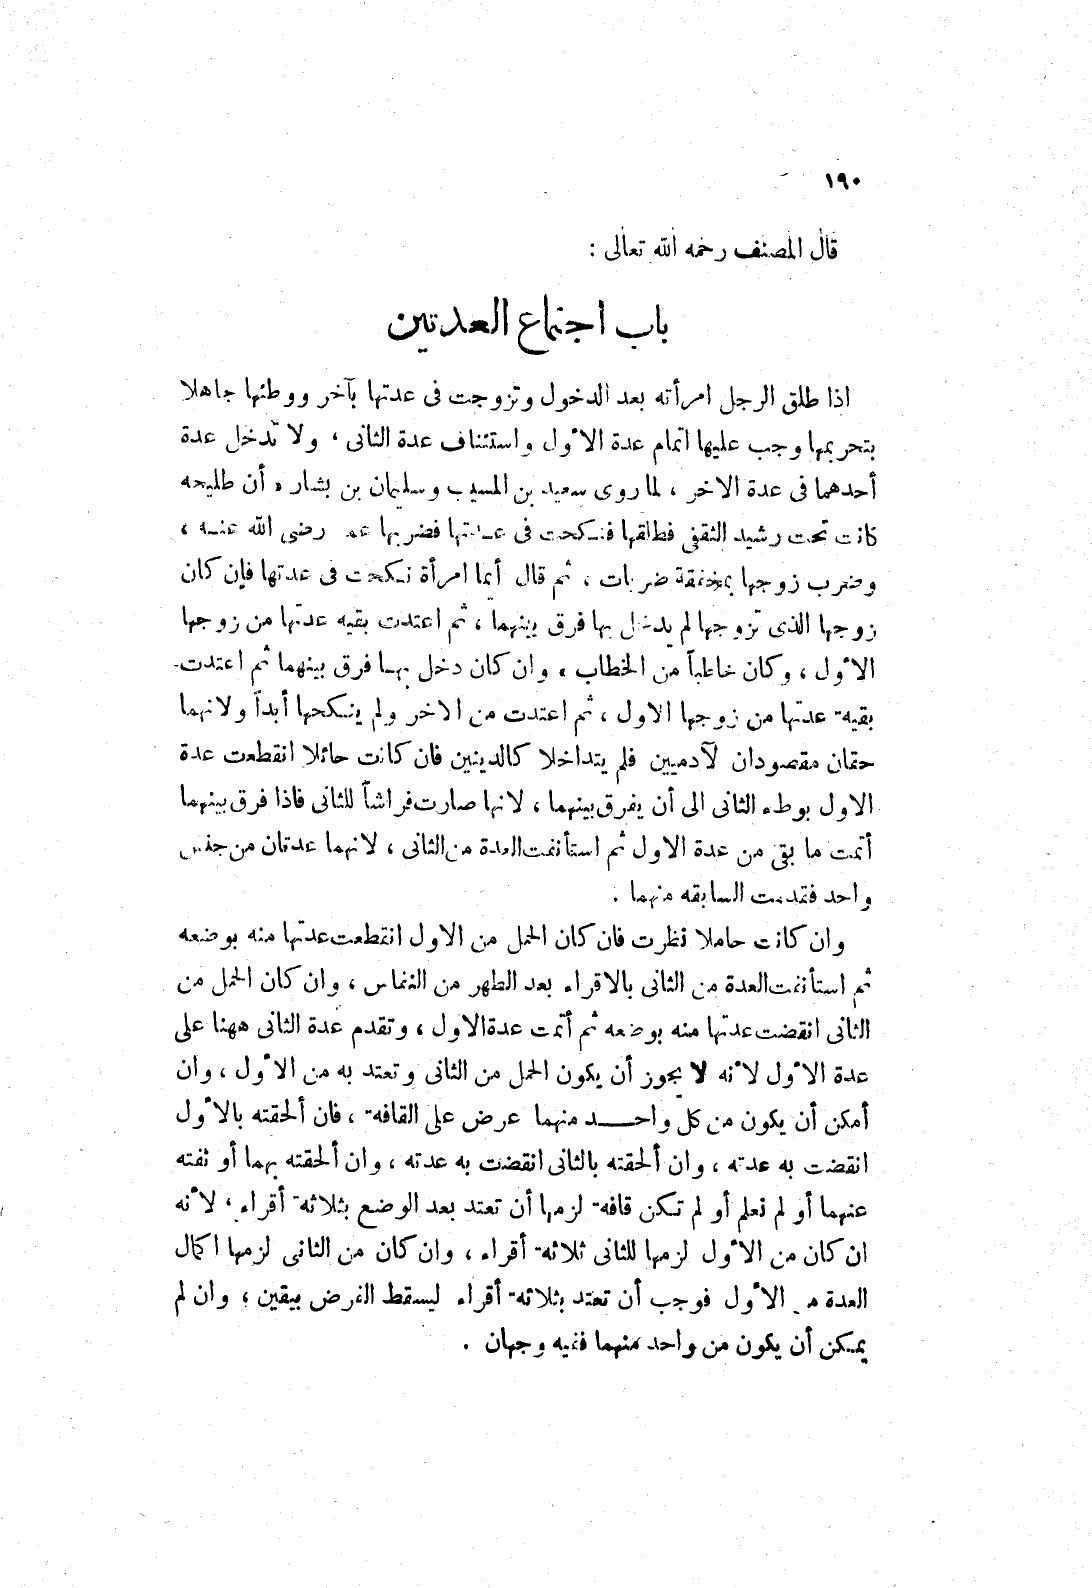 ١٩٠
قال المصنف رحمه الله تعالى :
باب اجتماع العدتين
اذا طلق الرجل امرأته بعد الدخول وتزوجت فى عدتها بآخر ووطئها جاهلا
بتحريمها وجب عليها اتمام عدة الأول واستئناف عدة الثانى ، ولا تدخل عدة
أحدهما فى عدة الاخر ، لما روى سعيد بن المسيب وسليمان بن بشار ، أن طليحه
كانت تحت رشيد الثقفى فطلقها فنكحت فى عدتها فضربها عمر رضى الله عنه ،
وضرب زوجها بمخفقة ضربات ، ثم قال أيما امرأة نكحت فى عدتها فإن كان
زوجها الذى تزوجها لم يدخل بها فرق بينهما ، ثم اعتدت بقيه عدتها من زوجها
الأول ، وكان خاطباً من الخطاب ، وان كان دخل بها فرق بينهما ثم اعتدت
بقيه عدتها من زوجها الاول ، ثم اعتدت من الاخر ولم ينكحها أبداً ولانهما
حقان مقصودان لآدميين فلم يتداخلا كالدينين فان كانت حائلا انقطعت عدة
الاول بوطء الثانى الى أن يفرق بينهما ، لانها صارت فراشاً للثانى فاذا فرق بينهما
أتمت ما بقى من عدة الاول ثم استأنفت العدة من الثانى ، لانهما عدتان من جنس
واحد فقدمت السابقه منهما .
وان كانت حاملا نظرت فان كان الحمل من الاول انقطعت عدتها منه بوضعه
ثم استأنفت العدة من الثانى بالاقراء بعد الطهر من النفاس ، وان كان الحمل من
الثانى انقضت عدتها منه بوضعه ثم أتمت عدة الاول ، وتقدم عدة الثانى ههنا على
عدة الأول لأنه لا يجوز أن يكون الحمل من الثانى وتعتد به من الأول ، وان
أمكن أن يكون من كل واحــد منهما عرض على القافه ، فان ألحقته بالأول
انقضت به عدته ، وان ألحقته بالثانى انقضت به عدته ، وان ألحقته بهما أو نفته
عنهما أو لم تعلم أو لم تكن قافه لزمها أن تعتد بعد الوضع بثلاثه أقراء ، لأنه
ان كان من الأول لزمها للثانى ثلاثه أقراء ، وان كان من الثانى لزمها اكمال
العدة من الأول فوجب أن تعتد بثلاثه أقراء ليسقط الفرض بيقين ، وان لم
يمكن أن يكون من واحد منهما ففيه وجهان .